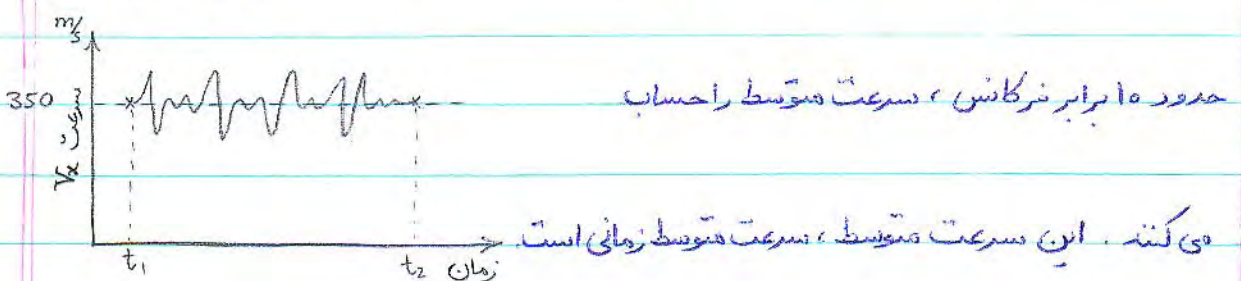 m/s
350
سرعت Vx
حدود ۱۵ برابر فرکانس ، سرعت متوسط را حساب
می کنند . این سرعت متوسط ، سرعت متوسط زمانی است .
t₁
t₂
زمان